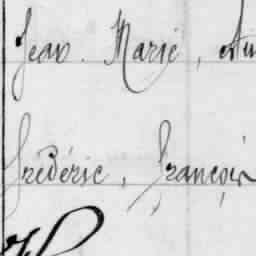 Jean. Marie, Au
Frédéric, François